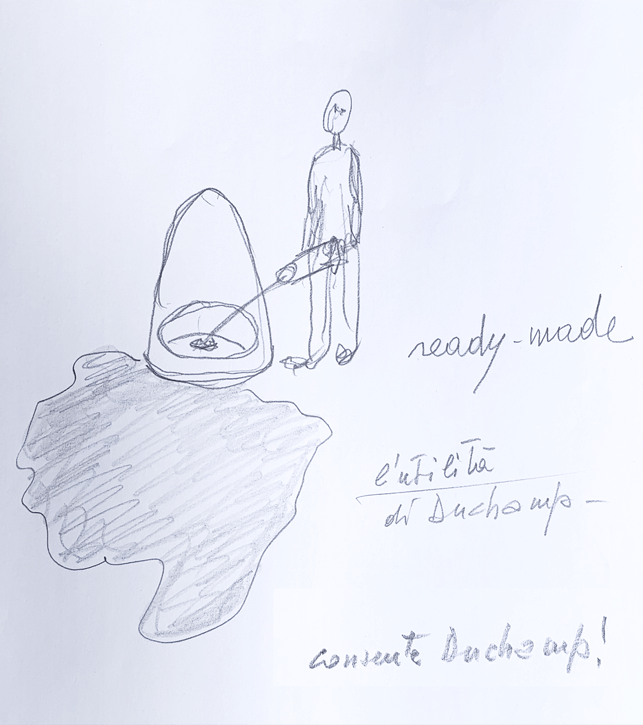 ready-made
l'utilità
di Duchamp -
consente Duchamp!